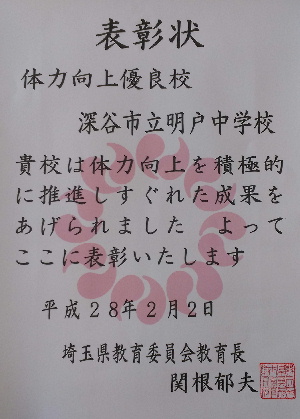 表彰状
体力向上優良校
深谷市立明戸中学校
貴校は体力向上を積極的
に推進しすぐれた成果を
あげられました　よって
ここに表彰いたします
平成28年2月2日
埼玉県教育委員会教育長
関根郁夫